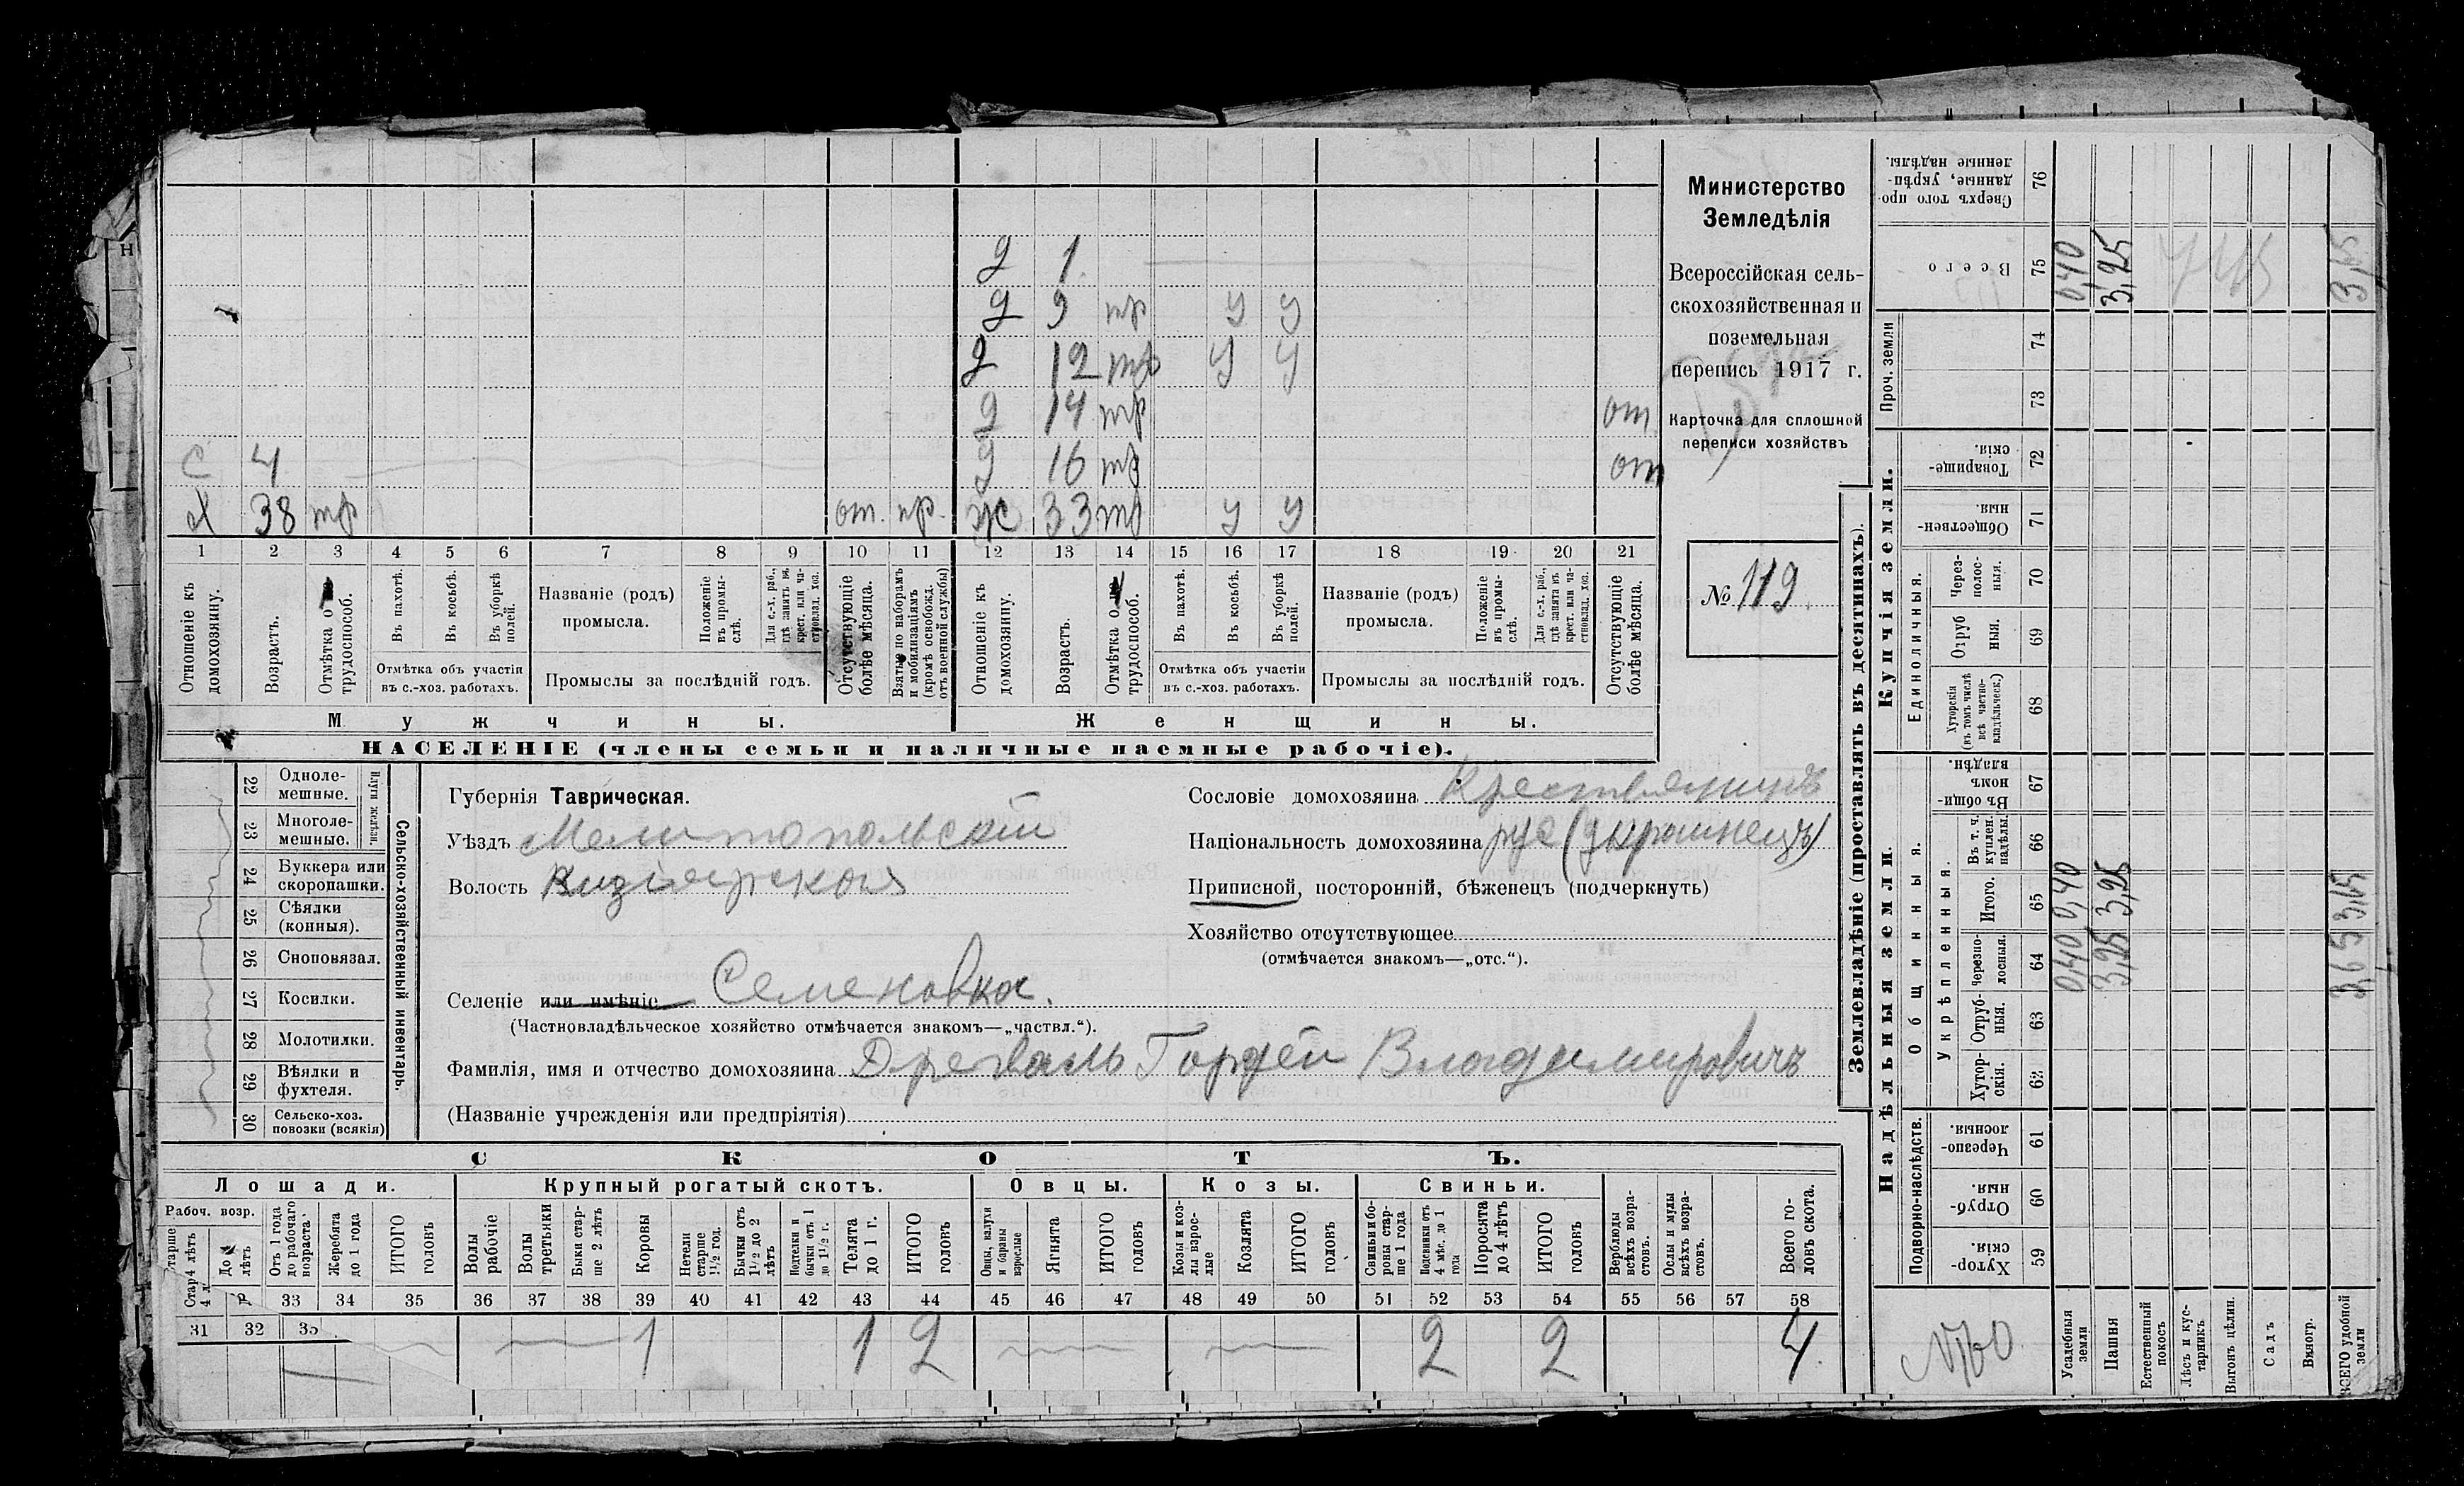 Министерство
Земледѣлія
Всероссійская сель-
скохозяйственная и
поземельная
перепись 1917 г.
Карточка для сплошной
переписи хозяйствъ
№ 119
д 1
д 9 тр у у
д 12 тр у у
д 14 тр от
с 4 д 16 тр от
х 38 тр от. пр. ж 33 тр у у
1 2 3 4 5 6 7 8 9 10 11 12 13 14 15 16 17 18 19 20 21
Отношеніе къ домохозяину.
Возрастъ.
Отмѣтка о трудоспособ.
Въ пахотѣ.
Въ косьбѣ.
Въ уборкѣ полей.
Отмѣтка объ участіи
въ с.-хоз. работахъ.
Названіе (родъ)
промысла.
Положеніе въ промы-слѣ.
Для с.-х. раб., гдѣ занятъ въ крест. или ча-стновлад. хоз.
Промыслы за послѣдній годъ.
Отсутствующіе болѣе мѣсяца.
Взятые по наборамъ и мобилизаціямъ (кромѣ освобожд. отъ военной службы)
Отношеніе къ домохозяину.
Возрастъ.
Отмѣтка о трудоспособ.
Въ пахотѣ.
Въ косьбѣ.
Въ уборкѣ полей.
Отмѣтка объ участіи
въ с.-хоз. работахъ.
Названіе (родъ)
промысла.
Положеніе въ промы-слѣ.
Для с.-х. раб., гдѣ занята въ крест. или ча-стновлад. хоз.
Промыслы за послѣдній годъ.
Отсутствующіе болѣе мѣсяца.
Мужчины. Женщины.
НАСЕЛЕНІЕ (члены семьи и наличные наемные рабочіе).
Сельско-хозяйственный инвентарь.
Плуги желѣзн.
22 Одноле-мешные.
23 Многоле-мешные.
24 Буккера или скоропашки.
25 Сѣялки (конныя).
26 Сноповязал.
27 Косилки.
28 Молотилки.
29 Вѣялки и фухтеля.
30 Сельско-хоз. повозки (всякія)
Губернія Таврическая.
Уѣздъ Мелитопольскій
Волость Кизіярская
Селеніе или имѣніе Семеновка.
(Частновладѣльческое хозяйство отмѣчается знакомъ—„частвл.“).
Фамилія, имя и отчество домохозяина Древаль Гордей Владимировичъ
(Названіе учрежденія или предпріятія)
Сословіе домохозяина Крестьянинъ
Національность домохозяина рус (украинецъ)
Приписной, посторонній, бѣженецъ (подчеркнуть)
Хозяйство отсутствующее
(отмѣчается знакомъ—„отс.“).
СКОТЪ.
Лошади. Крупный рогатый скотъ. Овцы. Козы. Свиньи.
Рабоч. возр.
От 1 года до рабочаго возраста
Жеребята до 1 года
ИТОГО головъ
Волы рабочіе
Волы третьяки
Быки стар-ше 2 лѣтъ
Коровы
Нетели старше 1½ год.
Бычки отъ 1½ до 2 лѣтъ
Подтелки и бычки отъ 1 до 1½ г.
Телята до 1 г.
ИТОГО головъ
Овцы, валухи и бараны взрослые
Ягнята
ИТОГО головъ
Козы и коз-лы взрос-лые
Козлята
ИТОГО головъ
Свиньи и бо-ровы стар-ше 1 года
Подсвинки отъ 4 мѣс. до 1 года
Поросята до 4 лѣтъ
ИТОГО головъ
Верблюды всѣхъ возра-стовъ.
Ослы и мулы всѣхъ возра-стовъ.
Всего го-ловъ скота.
33 34 35 36 37 38 39 40 41 42 43 44 45 46 47 48 49 50 51 52 53 54 55 56 57 58
31 32 33
1 1 2 2 2 4
Землевладѣніе (проставлять въ десятинахъ).
Купчія земли.
Надѣльныя земли.
Сверхъ того про-данные, укрѣп-ленные надѣлы. 76
Всего 75 0,40 3,25 3,65
Проч. земли 74 73
Товарище-скія. 72
Обществен-ныя. 71
Единоличныя.
Через-полос-ныя. 70
Отруб ныя. 69
Хуторскія (въ томъ числѣ всѣ частно-владѣльческ.) 68
Общинныя.
Въ общи-номъ владѣн. 67
Укрѣпленныя.
Въ т. ч. куплен. надѣлы. 66
Итого. 65 0,40 3,25 3,65
Черезпо-лосныя. 64 0,40 3,25 3,65
Отруб-ныя. 63
Хутор-скія. 62
Подворно-наслѣдств.
Черезпо-лосныя. 61
Отруб-ныя. 60
Хутор-скія. 59
Усадебныя земли
Пашня
Естественный покосъ
Лѣсъ и кус-тарникъ
Выгонъ цѣлин.
Садъ
Виногр.
ВСЕГО удобной земли